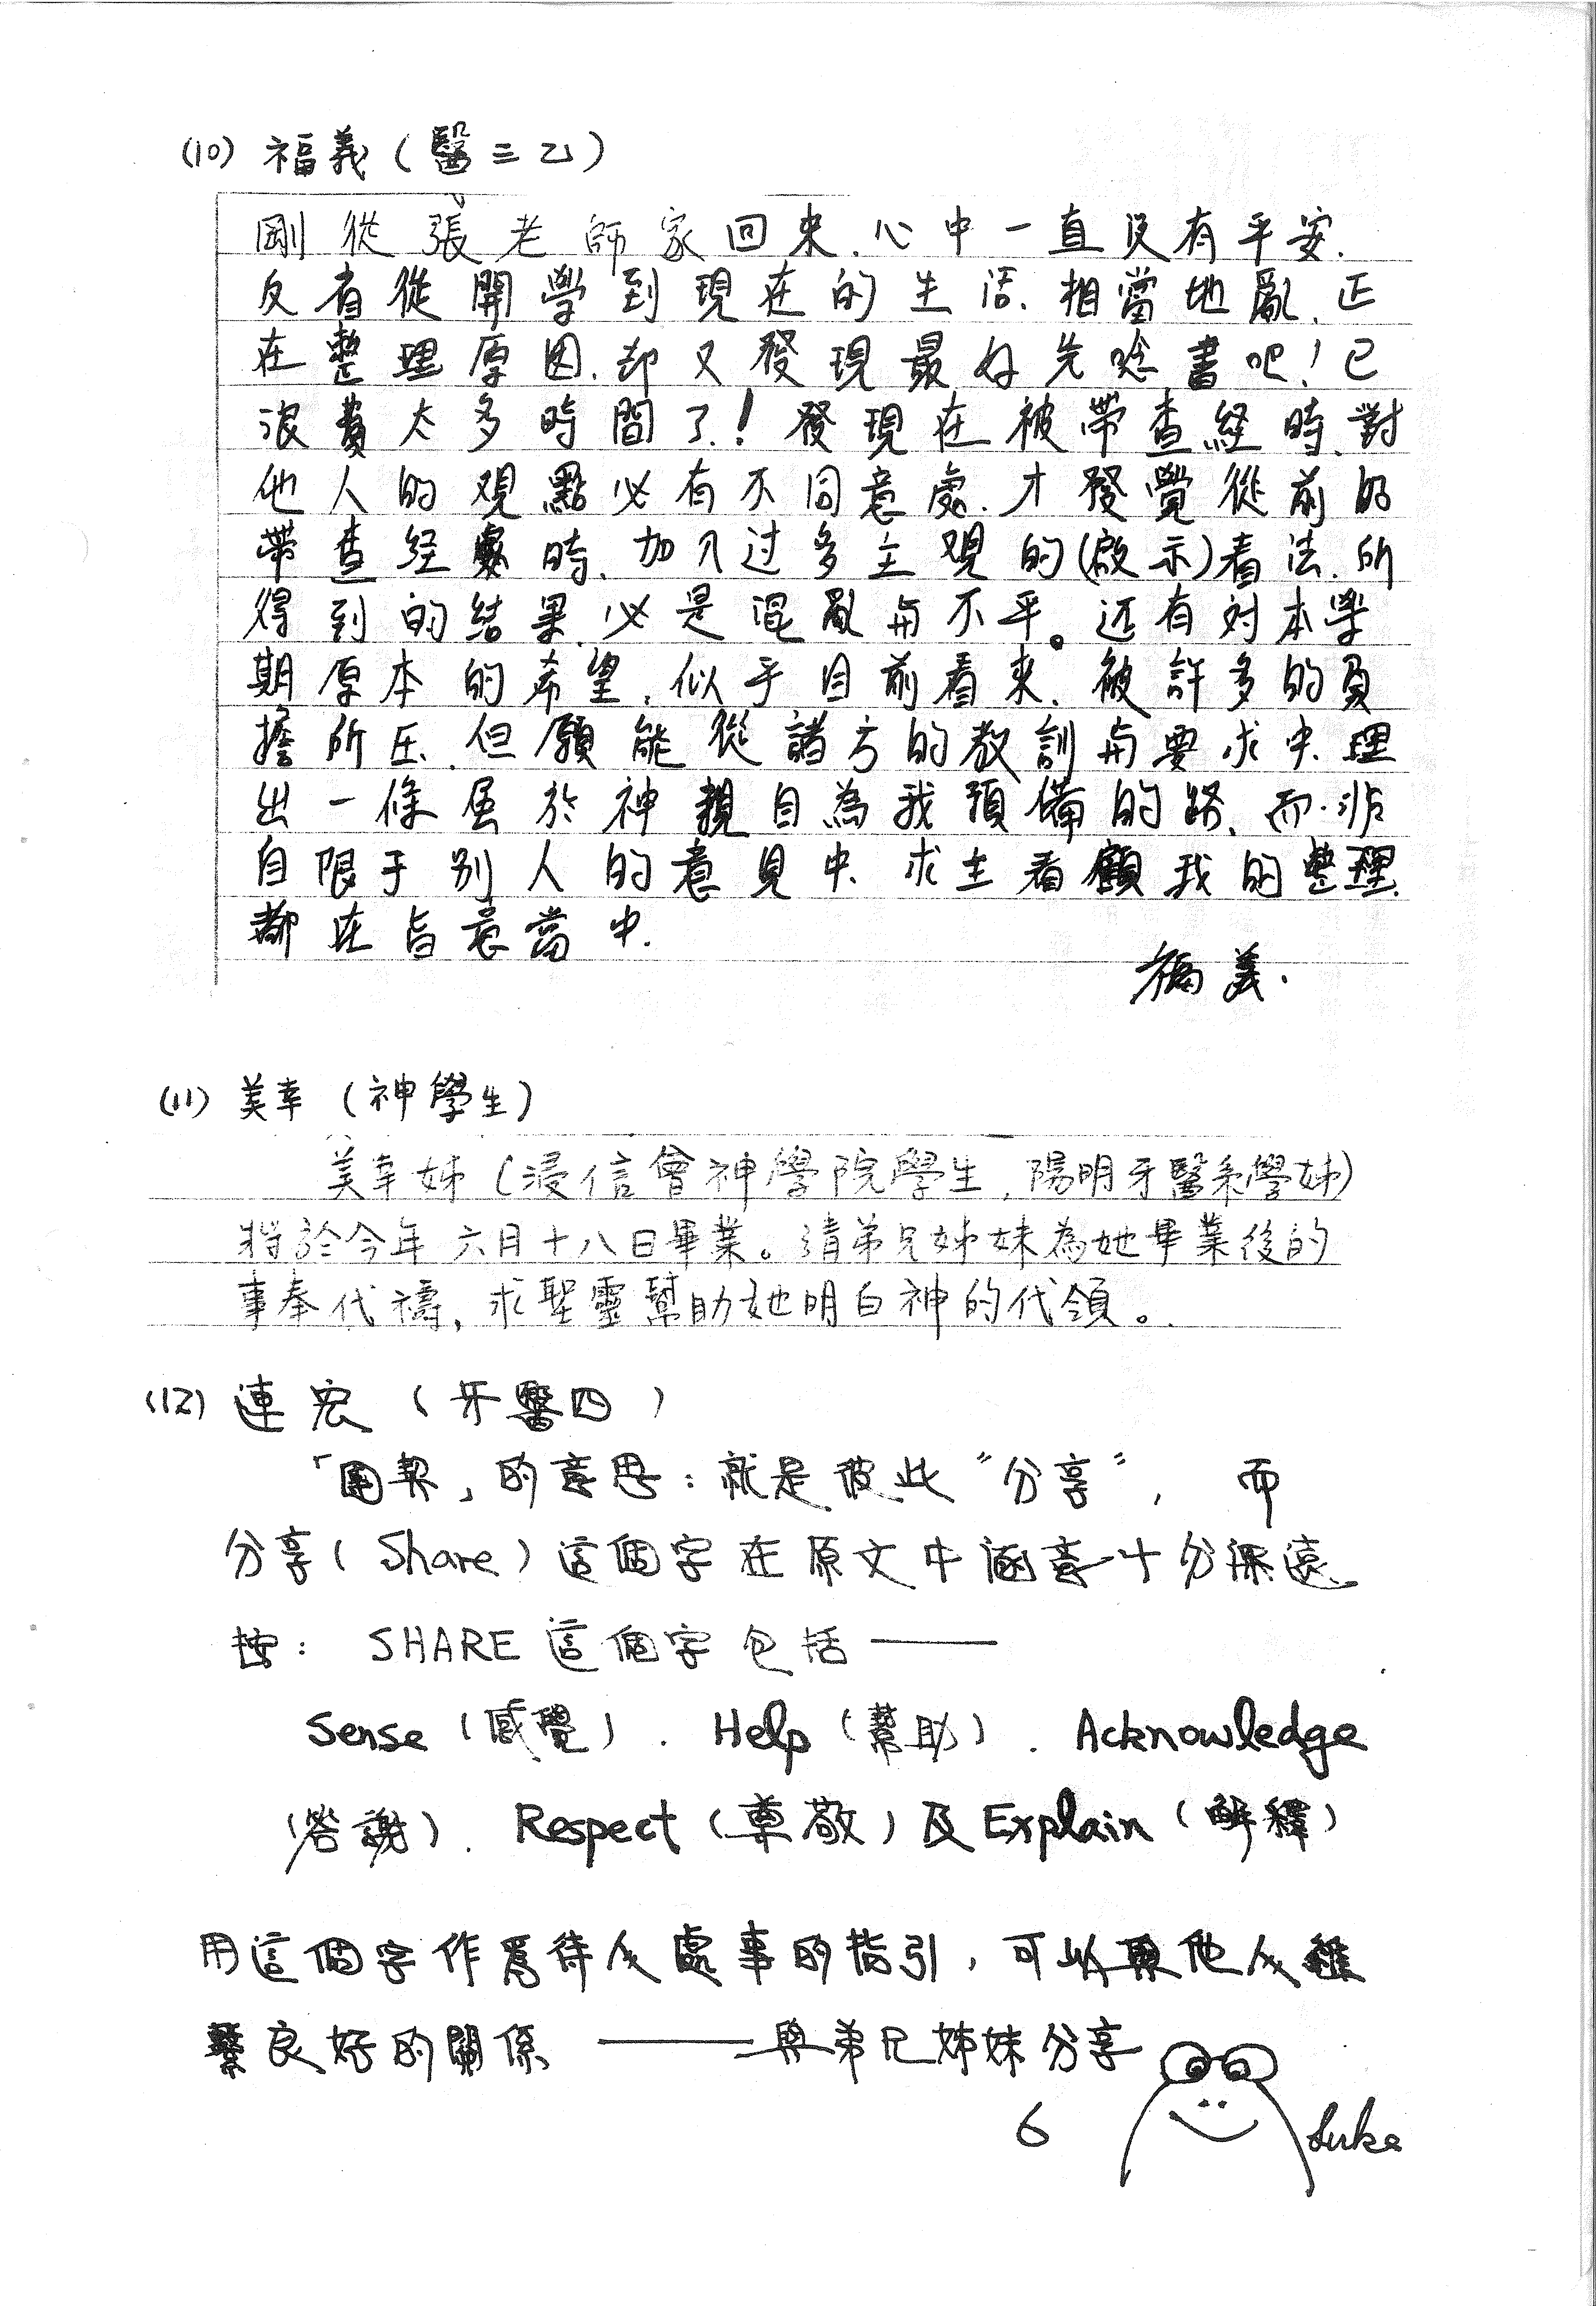 (10) 福義(醫三乙)
剛從張老師家回來.心中一直沒有平安.
反省從開學到現在的生活.相當地亂.正
在整理原因.却又發現最好先唸書吧!已
浪費太多時間了!發現在被帶查經時.對
他人的观點必有不同意處.才發覺從前的
帶查經處時.加入过多主观的(啟示)看法.所
得到的結果.必是混亂与不平。还有对本學
期原本的希望.似乎目前看來.被許多的負
擔所压.但願能從諸方的教訓与要求中.理
出一條屬於神親自為我預備的路.而非
自限于别人的意見中.求主看顧我的整理.
都在旨意當中.
福義.
(11) 美幸(神學生)
美幸姊(浸信會神學院學生,陽明牙醫系學姊)
將於今年六月十八日畢業。請弟兄姊妹為她畢業後的
事奉代禱,求聖靈幫助她明白神的代領。
(12) 連宏(牙醫四)
「團契」的意思:就是彼此“分享”,而
分享(Share)這個字在原文中涵意十分深遠
按: SHARE 這個字包括———
Sense(感覺). Help(幫助). Acknowledge
(答謝). Respect(尊敬)及Explain(解釋)
用這個字作爲待人處事的指引,可以與他人維
繫良好的關係 ———與弟兄姊妹分享
6 Luke